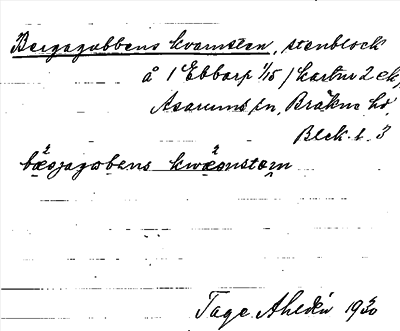 Bergagubbens kvarnsten, stenblock
å 1 Ebbarp 1/15 / kartan 2 ek,
Asarums sn, Bräkne hd,
Blek. l. 3
Tage Ahldén 1930